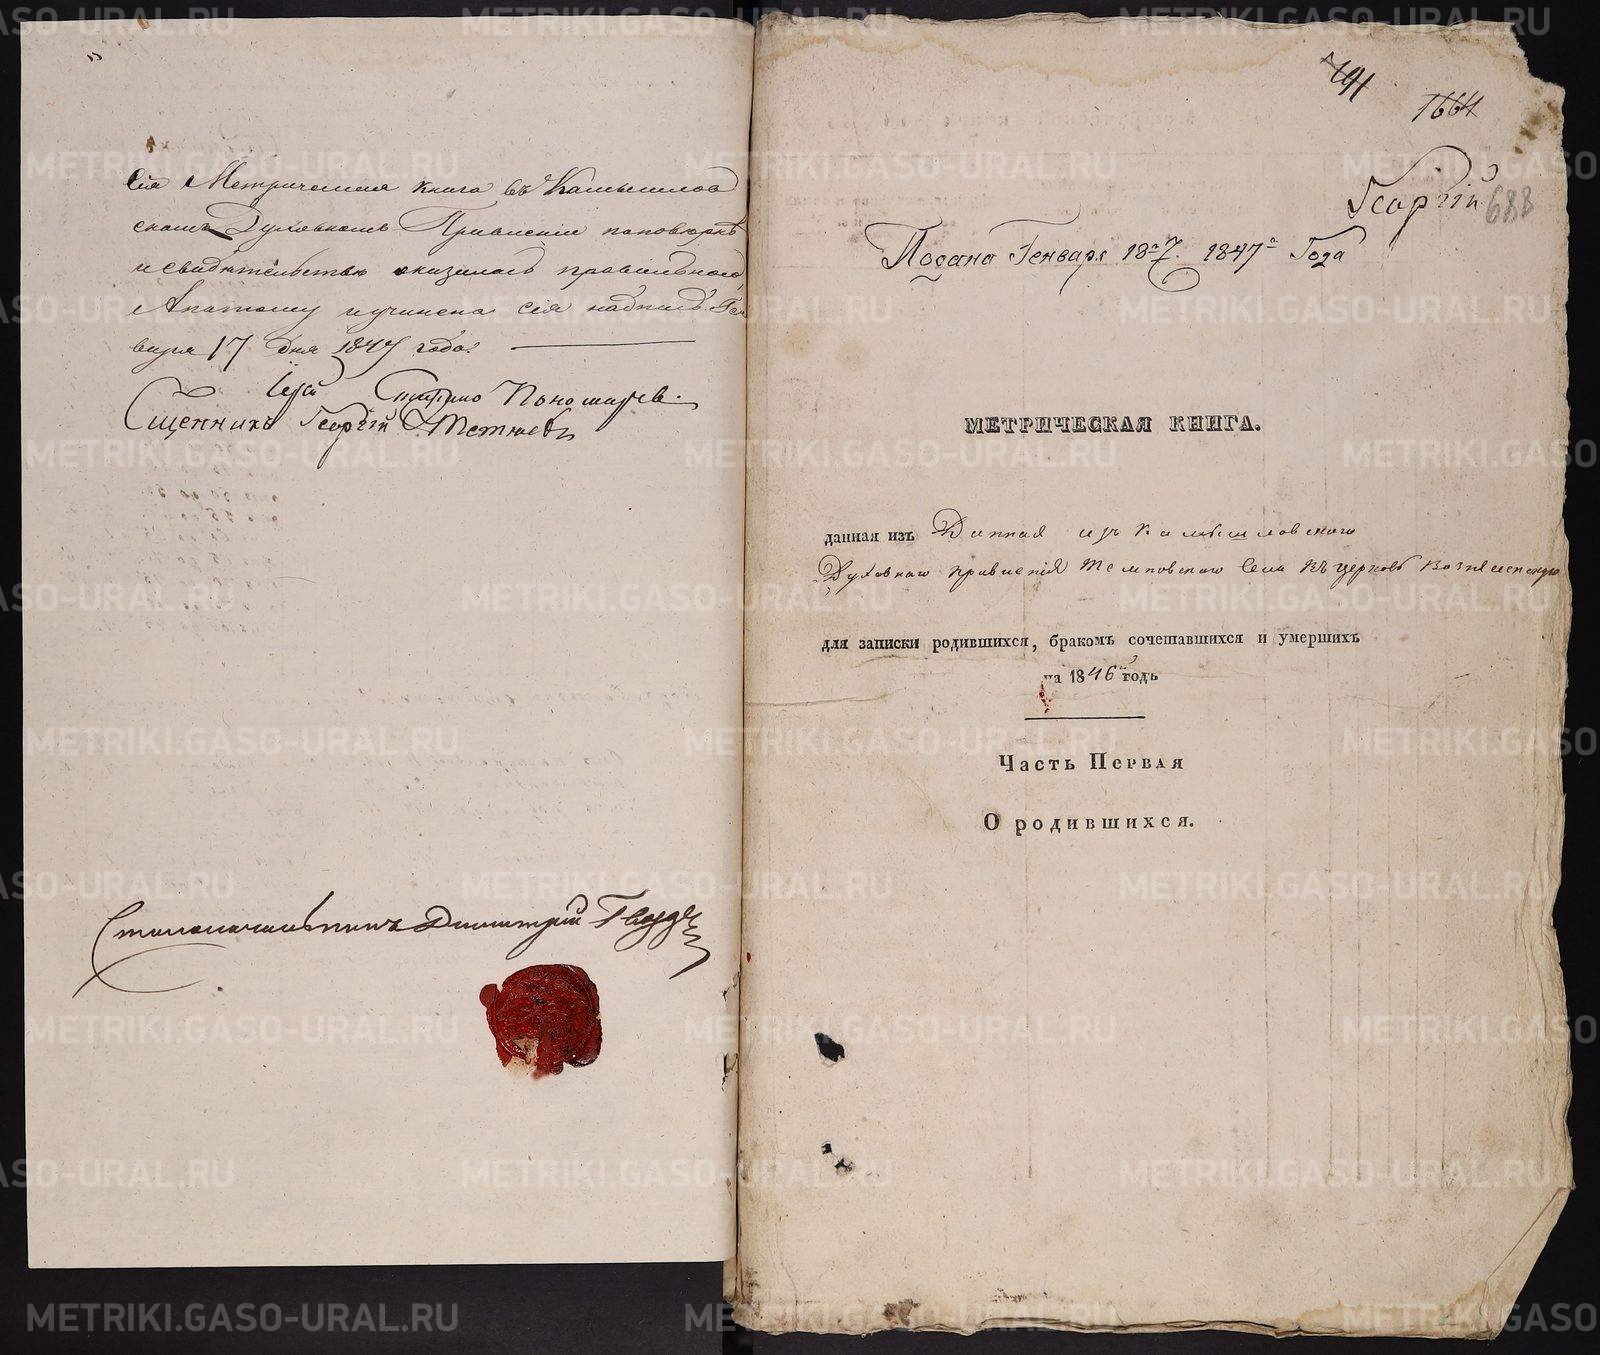 Сія Метрическая книга въ Камышлов
скомъ Духовномъ Правленіи
и свидѣтельству оказалась правильною
А потому и учинена сія надпись Ген
варя 17 дня 1847 года.
Іерей Пономарев.
Сщенникъ Георгій
Столоначальникъ Димитрій
1664
Георгій
688
Подана Генваря 18 7. 1847 Года
МЕТРИЧЕСКАЯ КНИГА.
данная изъ Данная изъ Камышловского
Духовнаго правленія Темновскаго села къ церкви Вознесенскую
для записки родившихся, бракомъ сочетавшихся и умершихъ
на 1846 годъ
Часть Первая
О родившихся.
METRIKI.GASO-URAL.RU